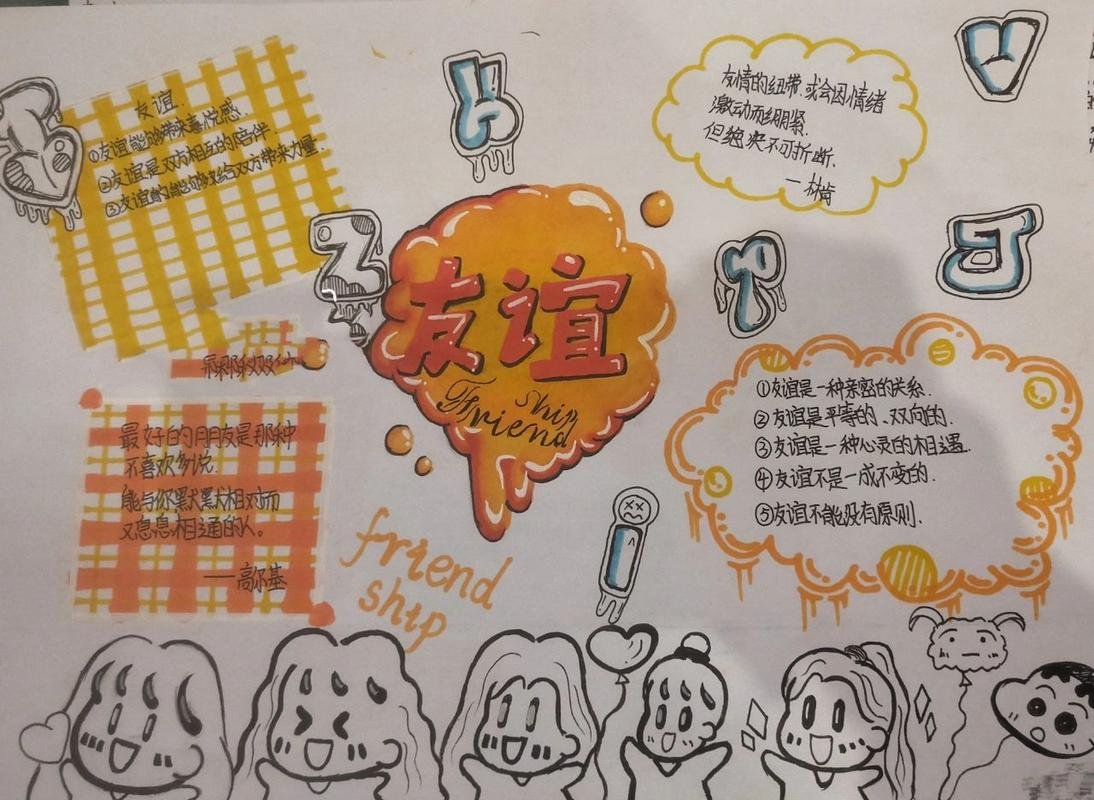 友谊
①友谊能够带来喜悦感.
②友谊是双方相互的陪伴.
③友谊的能够给双方带来力量.
友情的纽带.或会因情绪
激动而绷紧.
但绝决不可折断.
—林肯
Z
友谊
Friend
Ship
J
最好的朋友是那种
不喜欢多说.
能与你默默相对而
又息息相通的人。
——高尔基
①友谊是一种亲密的关系.
②友谊是平等的、双向的.
③友谊是一种心灵的相遇.
④友谊不是一成不变的.
⑤友谊不能没有原则.
friend
ship